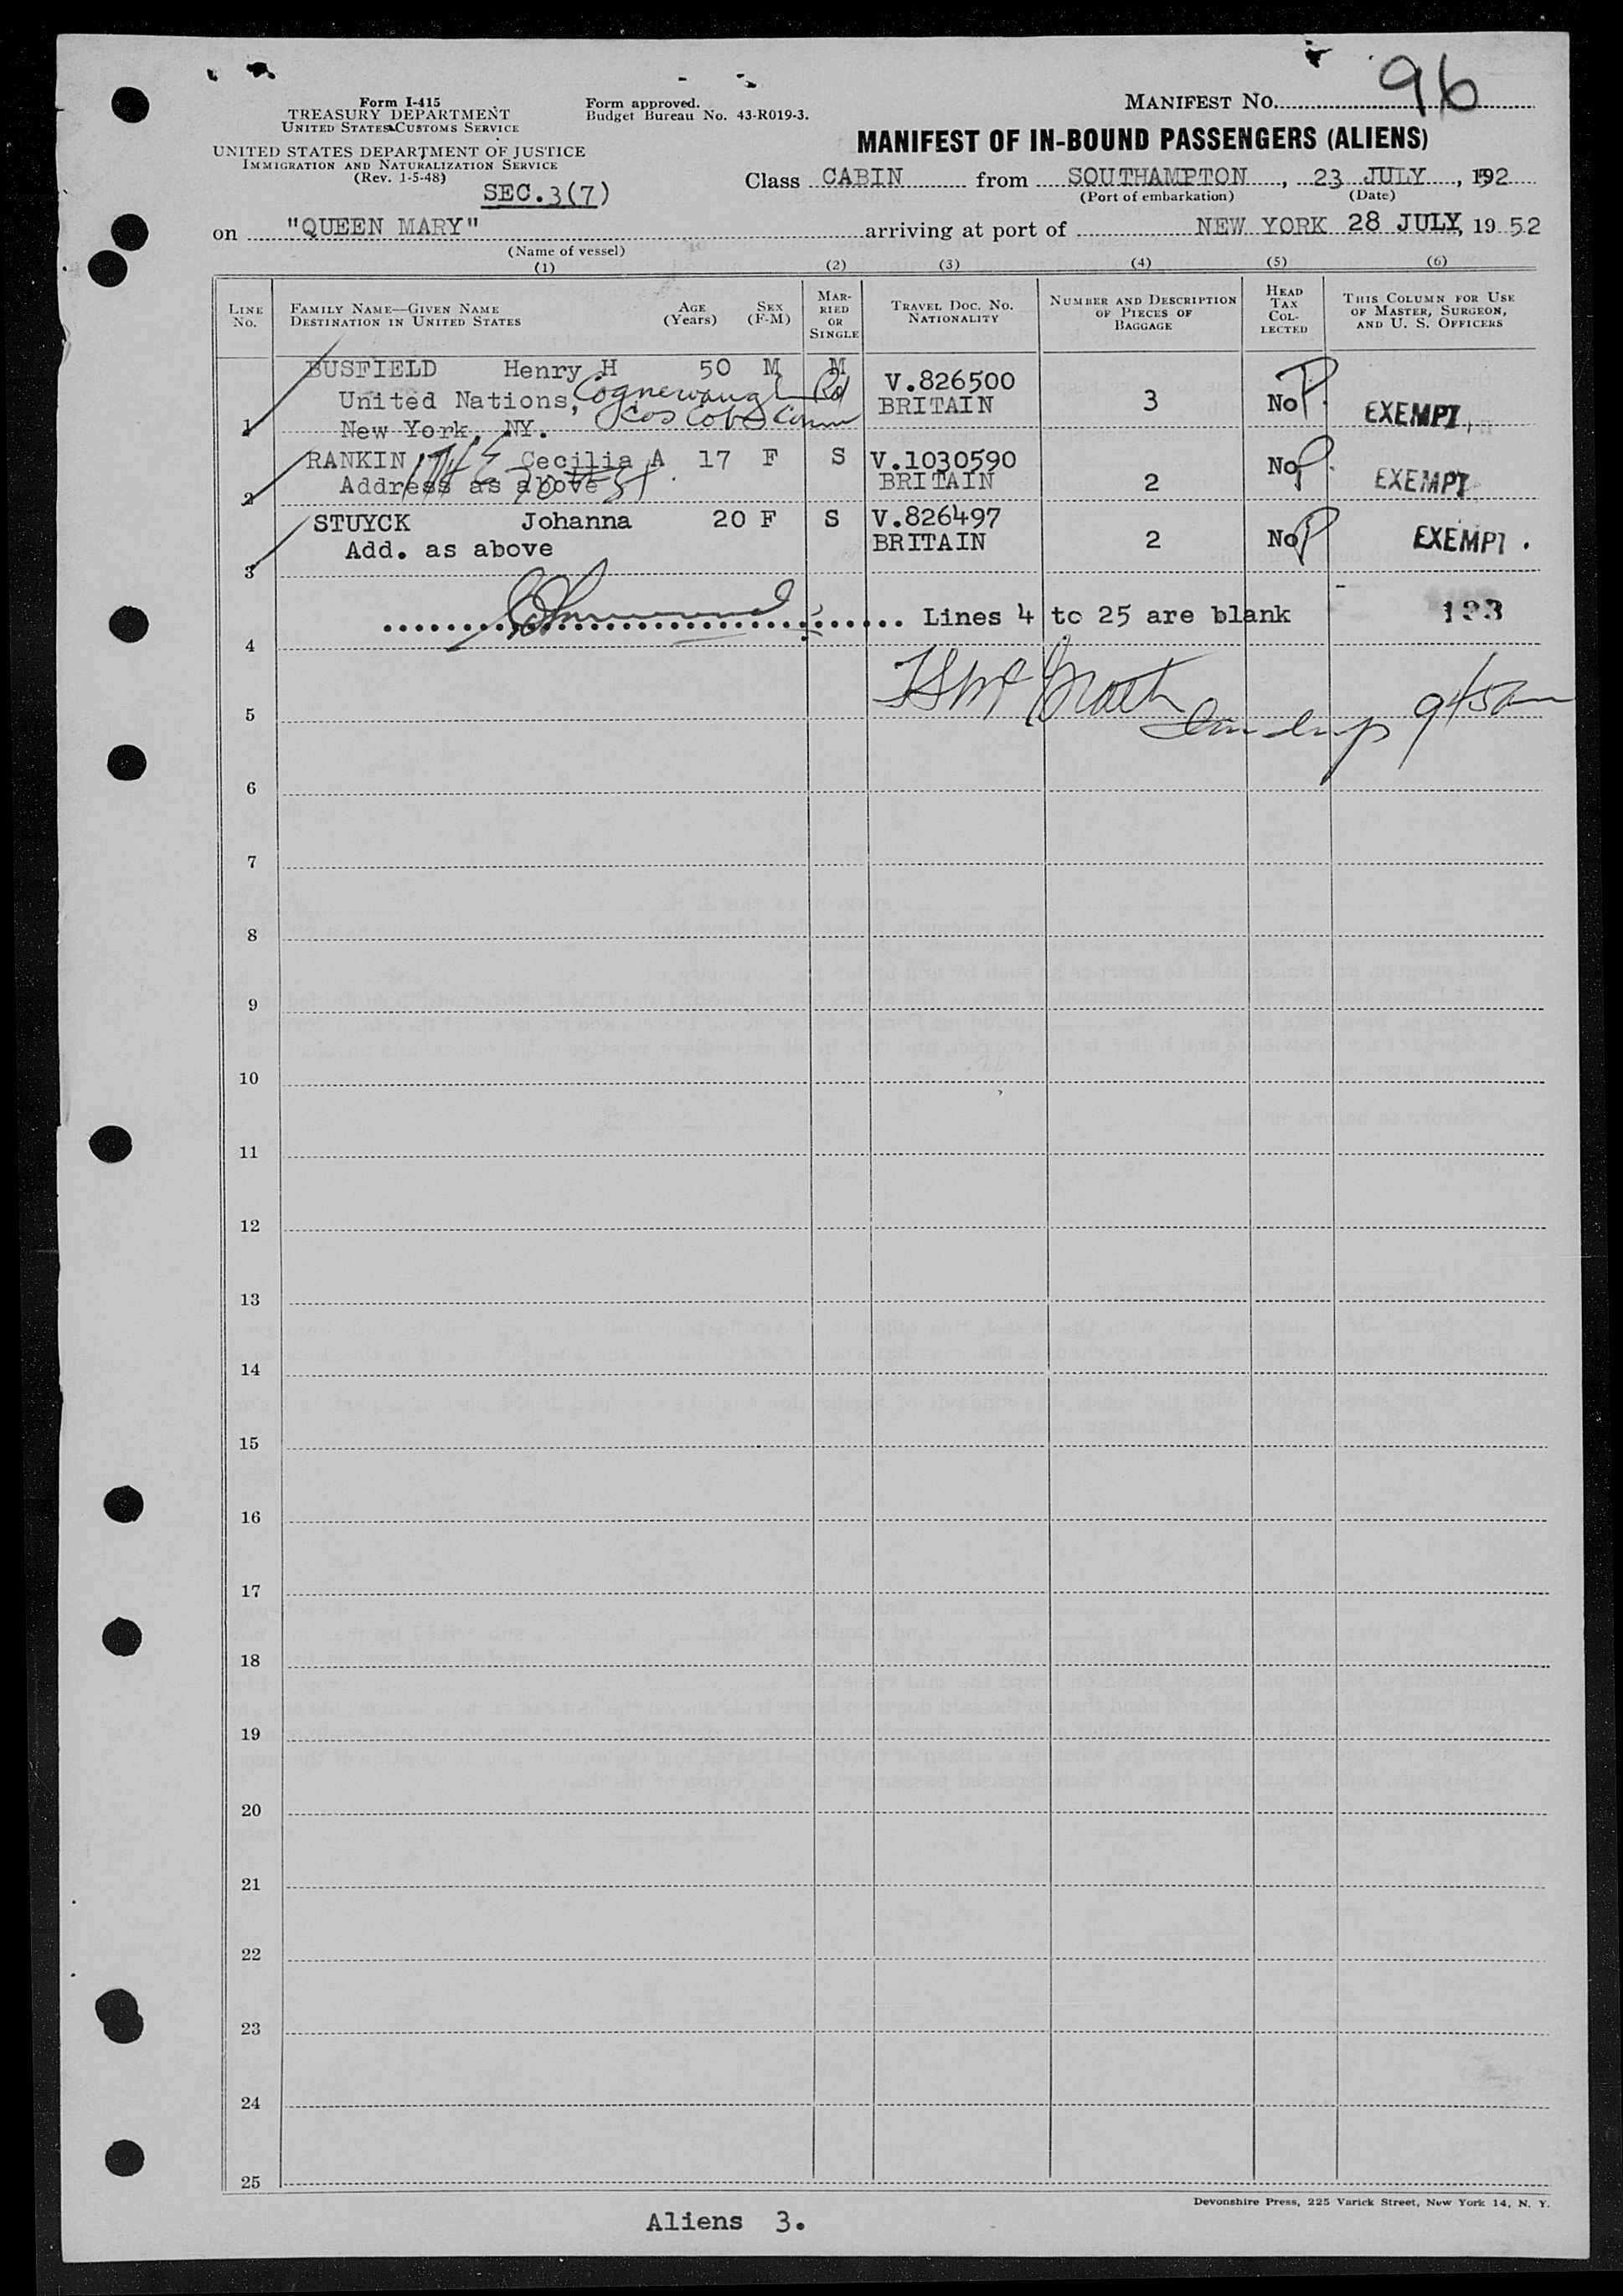 Form I-415
TREASURY DEPARTMENT
UNITED STATES CUSTOMS SERVICE
UNITED STATES DEPARTMENT OF JUSTICE
IMMIGRATION AND NATURALIZATION SERVICE
(Rev. 1-5-48)
SEC.3(7)
Form approved.
Budget Bureau No. 43-R019-3.
MANIFEST No. 96
MANIFEST OF IN-BOUND PASSENGERS (ALIENS)
Class CABIN from SOUTHAMPTON, 23 JULY, 1952
(Port of embarkation) (Date)
on "QUEEN MARY" arriving at port of NEW YORK 28 JULY, 1952
(Name of vessel)
(1) (2) (3) (4) (5) (6)
LINE No. FAMILY NAME—GIVEN NAME DESTINATION IN UNITED STATES AGE (Years) SEX (F-M) MARRIED OR SINGLE TRAVEL DOC. NO. NATIONALITY NUMBER AND DESCRIPTION OF PIECES OF BAGGAGE HEAD TAX COLLECTED THIS COLUMN FOR USE OF MASTER, SURGEON, AND U. S. OFFICERS
BUSFIELD Henry H 50 M M V.826500
United Nations, Cognewaugh Rd BRITAIN 3 No P. EXEMPT
1 New York, NY. Cos Cob Conn
RANKIN Cecilia A 17 F S V.1030590 No P.
2 Address as above 17 H E 70th St. BRITAIN 2 EXEMPT
STUYCK Johanna 20 F S V.826497
Add. as above BRITAIN 2 No P EXEMPT.
3
Lines 4 to 25 are blank
4
T S McGrath
5
945am
6
7
8
9
10
11
12
13
14
15
16
17
18
19
20
21
22
23
24
25
Devonshire Press, 225 Varick Street, New York 14, N. Y.
Aliens 3.